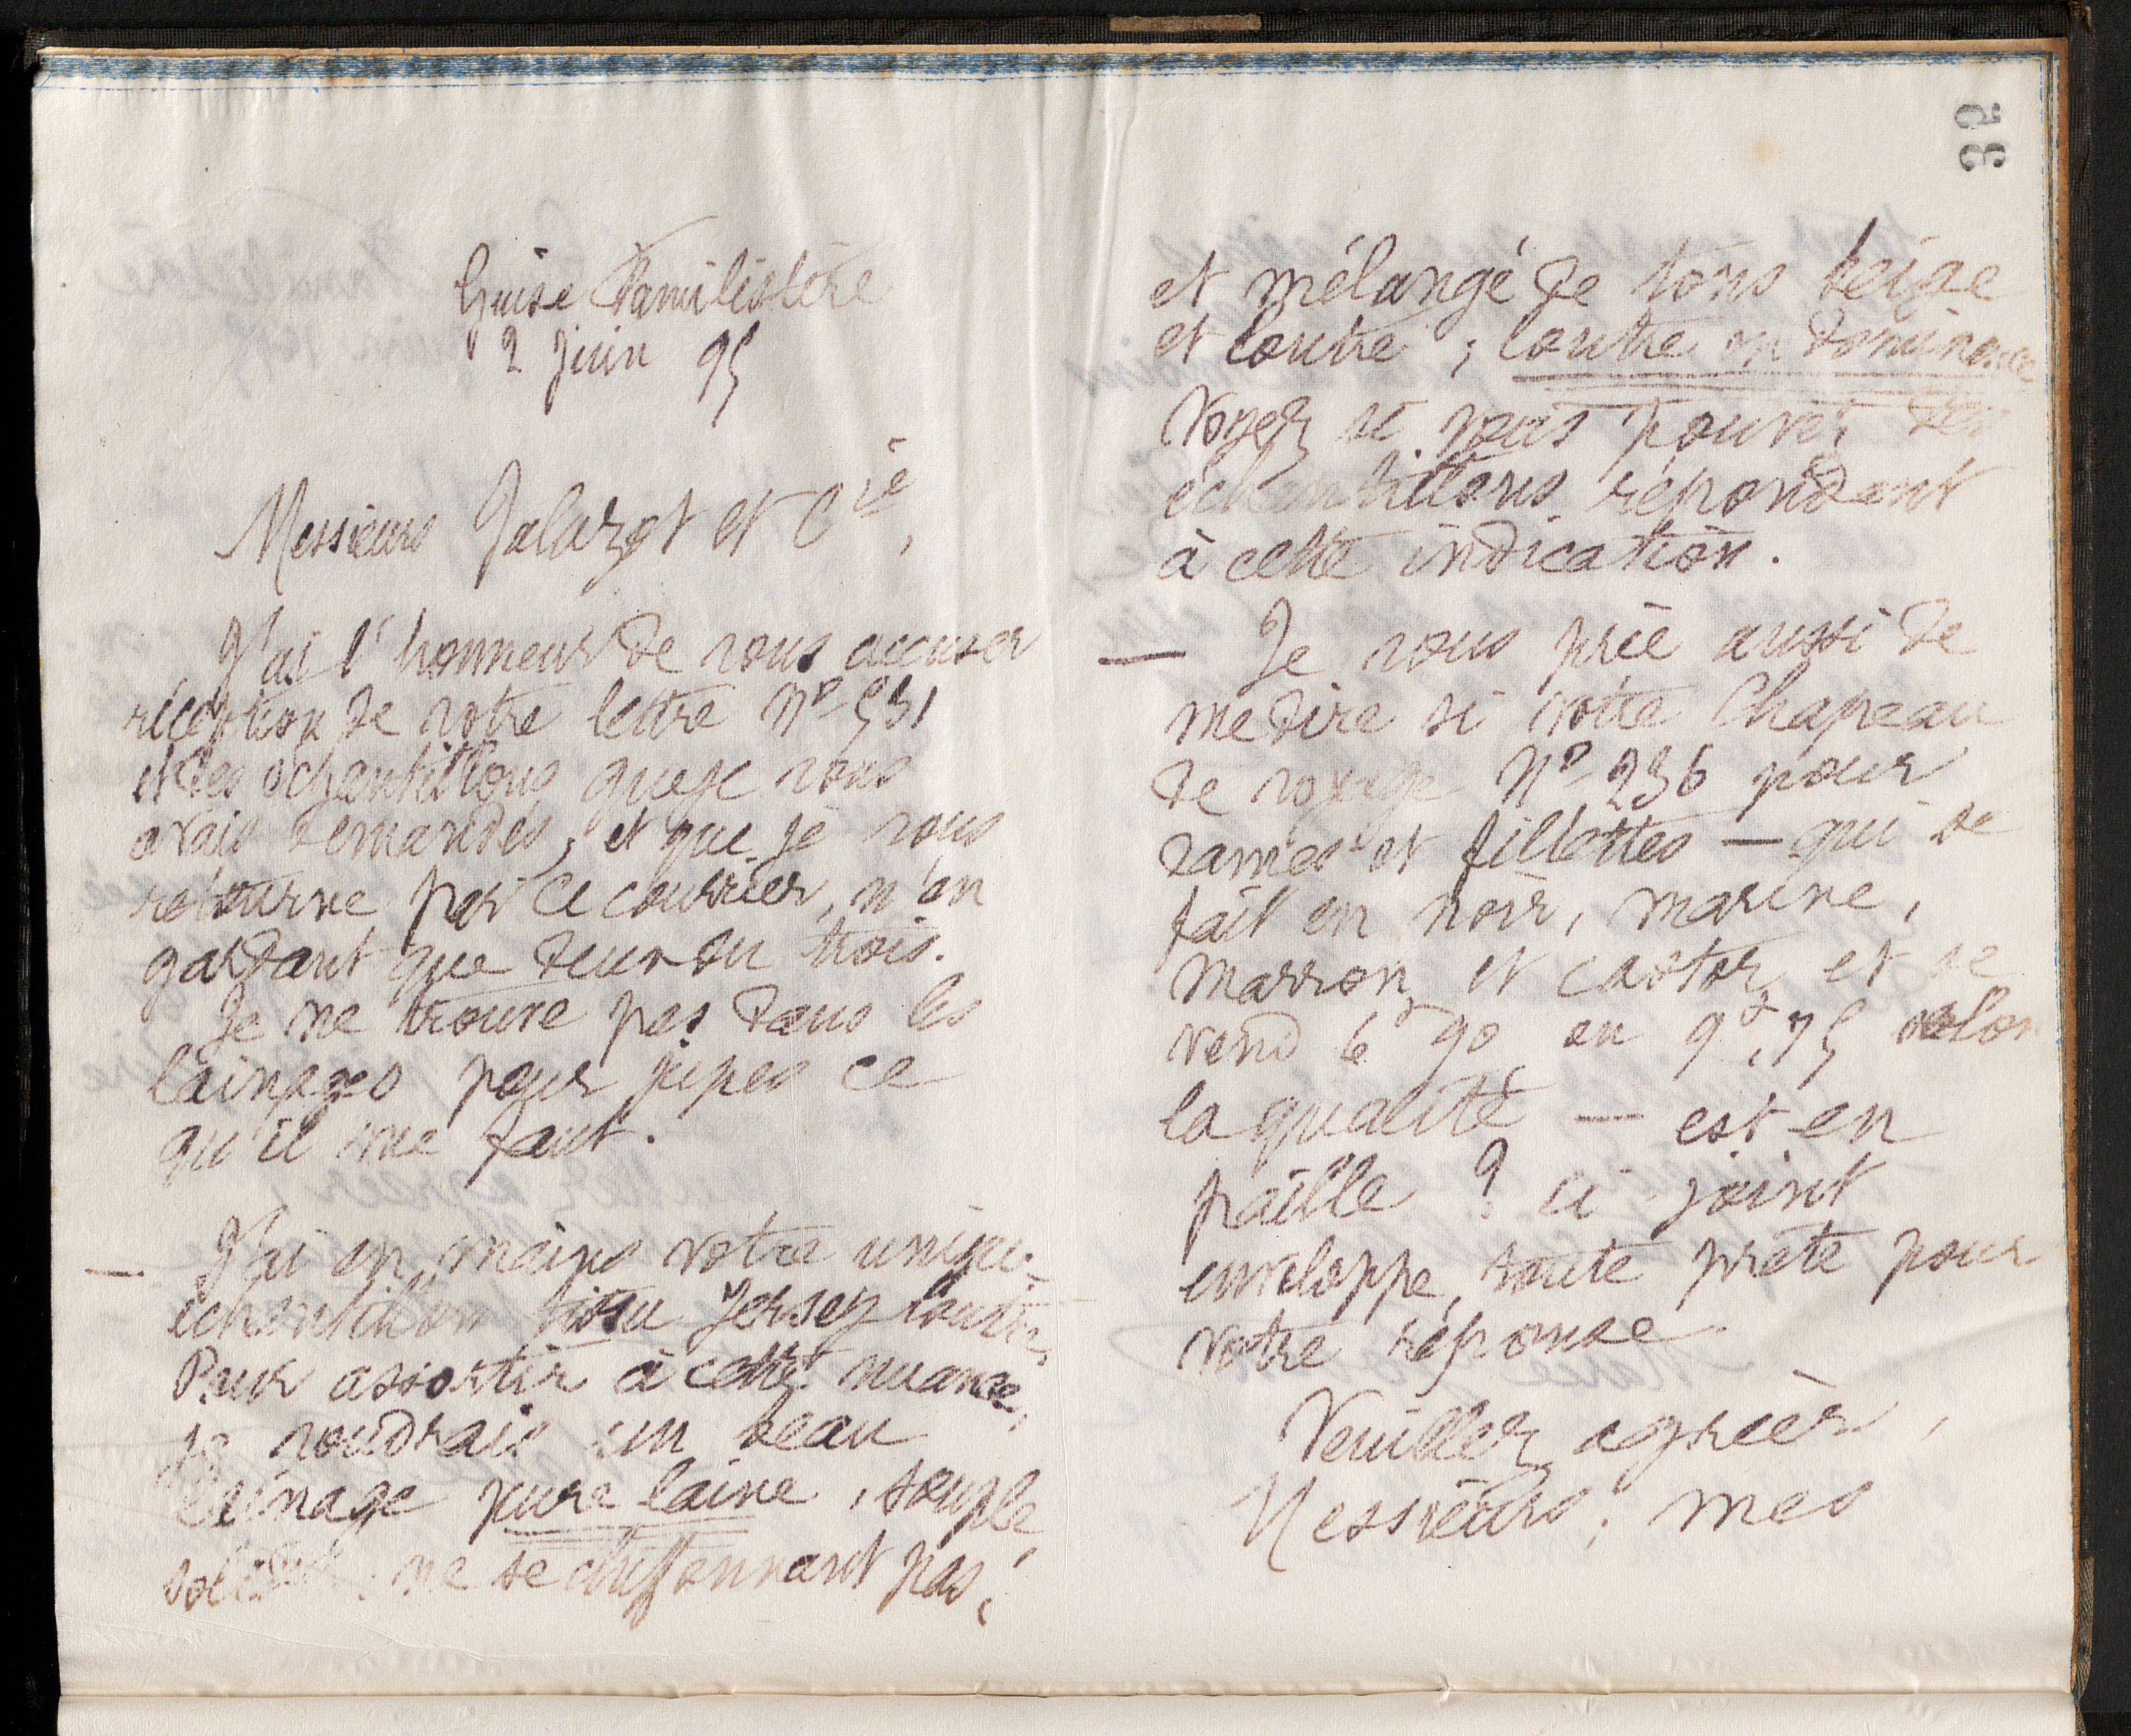 Guise Familistère
2 Juin 95
Messieurs Jaluzot et Cie,
J'ai l'honneur de vous accuser
réception de votre lettre No 531
et des échantillons que je vous
avais demandés, et que je vous
retourne par ce courrier, n'en
gardant que deux ou trois.
Je ne trouve pas dans les
lainages pour jupes ce
qu'il me faut.
— J'ai en mains votre unique
échantillon tissu Jersey loutre,
Pour assortir à cette nuance,
je voudrais un beau
lainage pure laine, souple,
solide, ne se chiffonnant pas,
35
et mélangé de tons beige
et loutre ; loutre en dominance
Voyez si vous pouvez des
échantillons répondant
à cette indication.
— Je vous prie aussi de
me dire si votre Chapeau
de voyage No 236 pour
dames et fillettes — qui se
fait en noir, marine,
marron et castor et se
vend 6f 90 ou 9f,75 selon
la qualité — est en
paille ? ci-joint
enveloppe, toute prête pour
votre réponse
Veuillez agréer,
Messieurs, mes